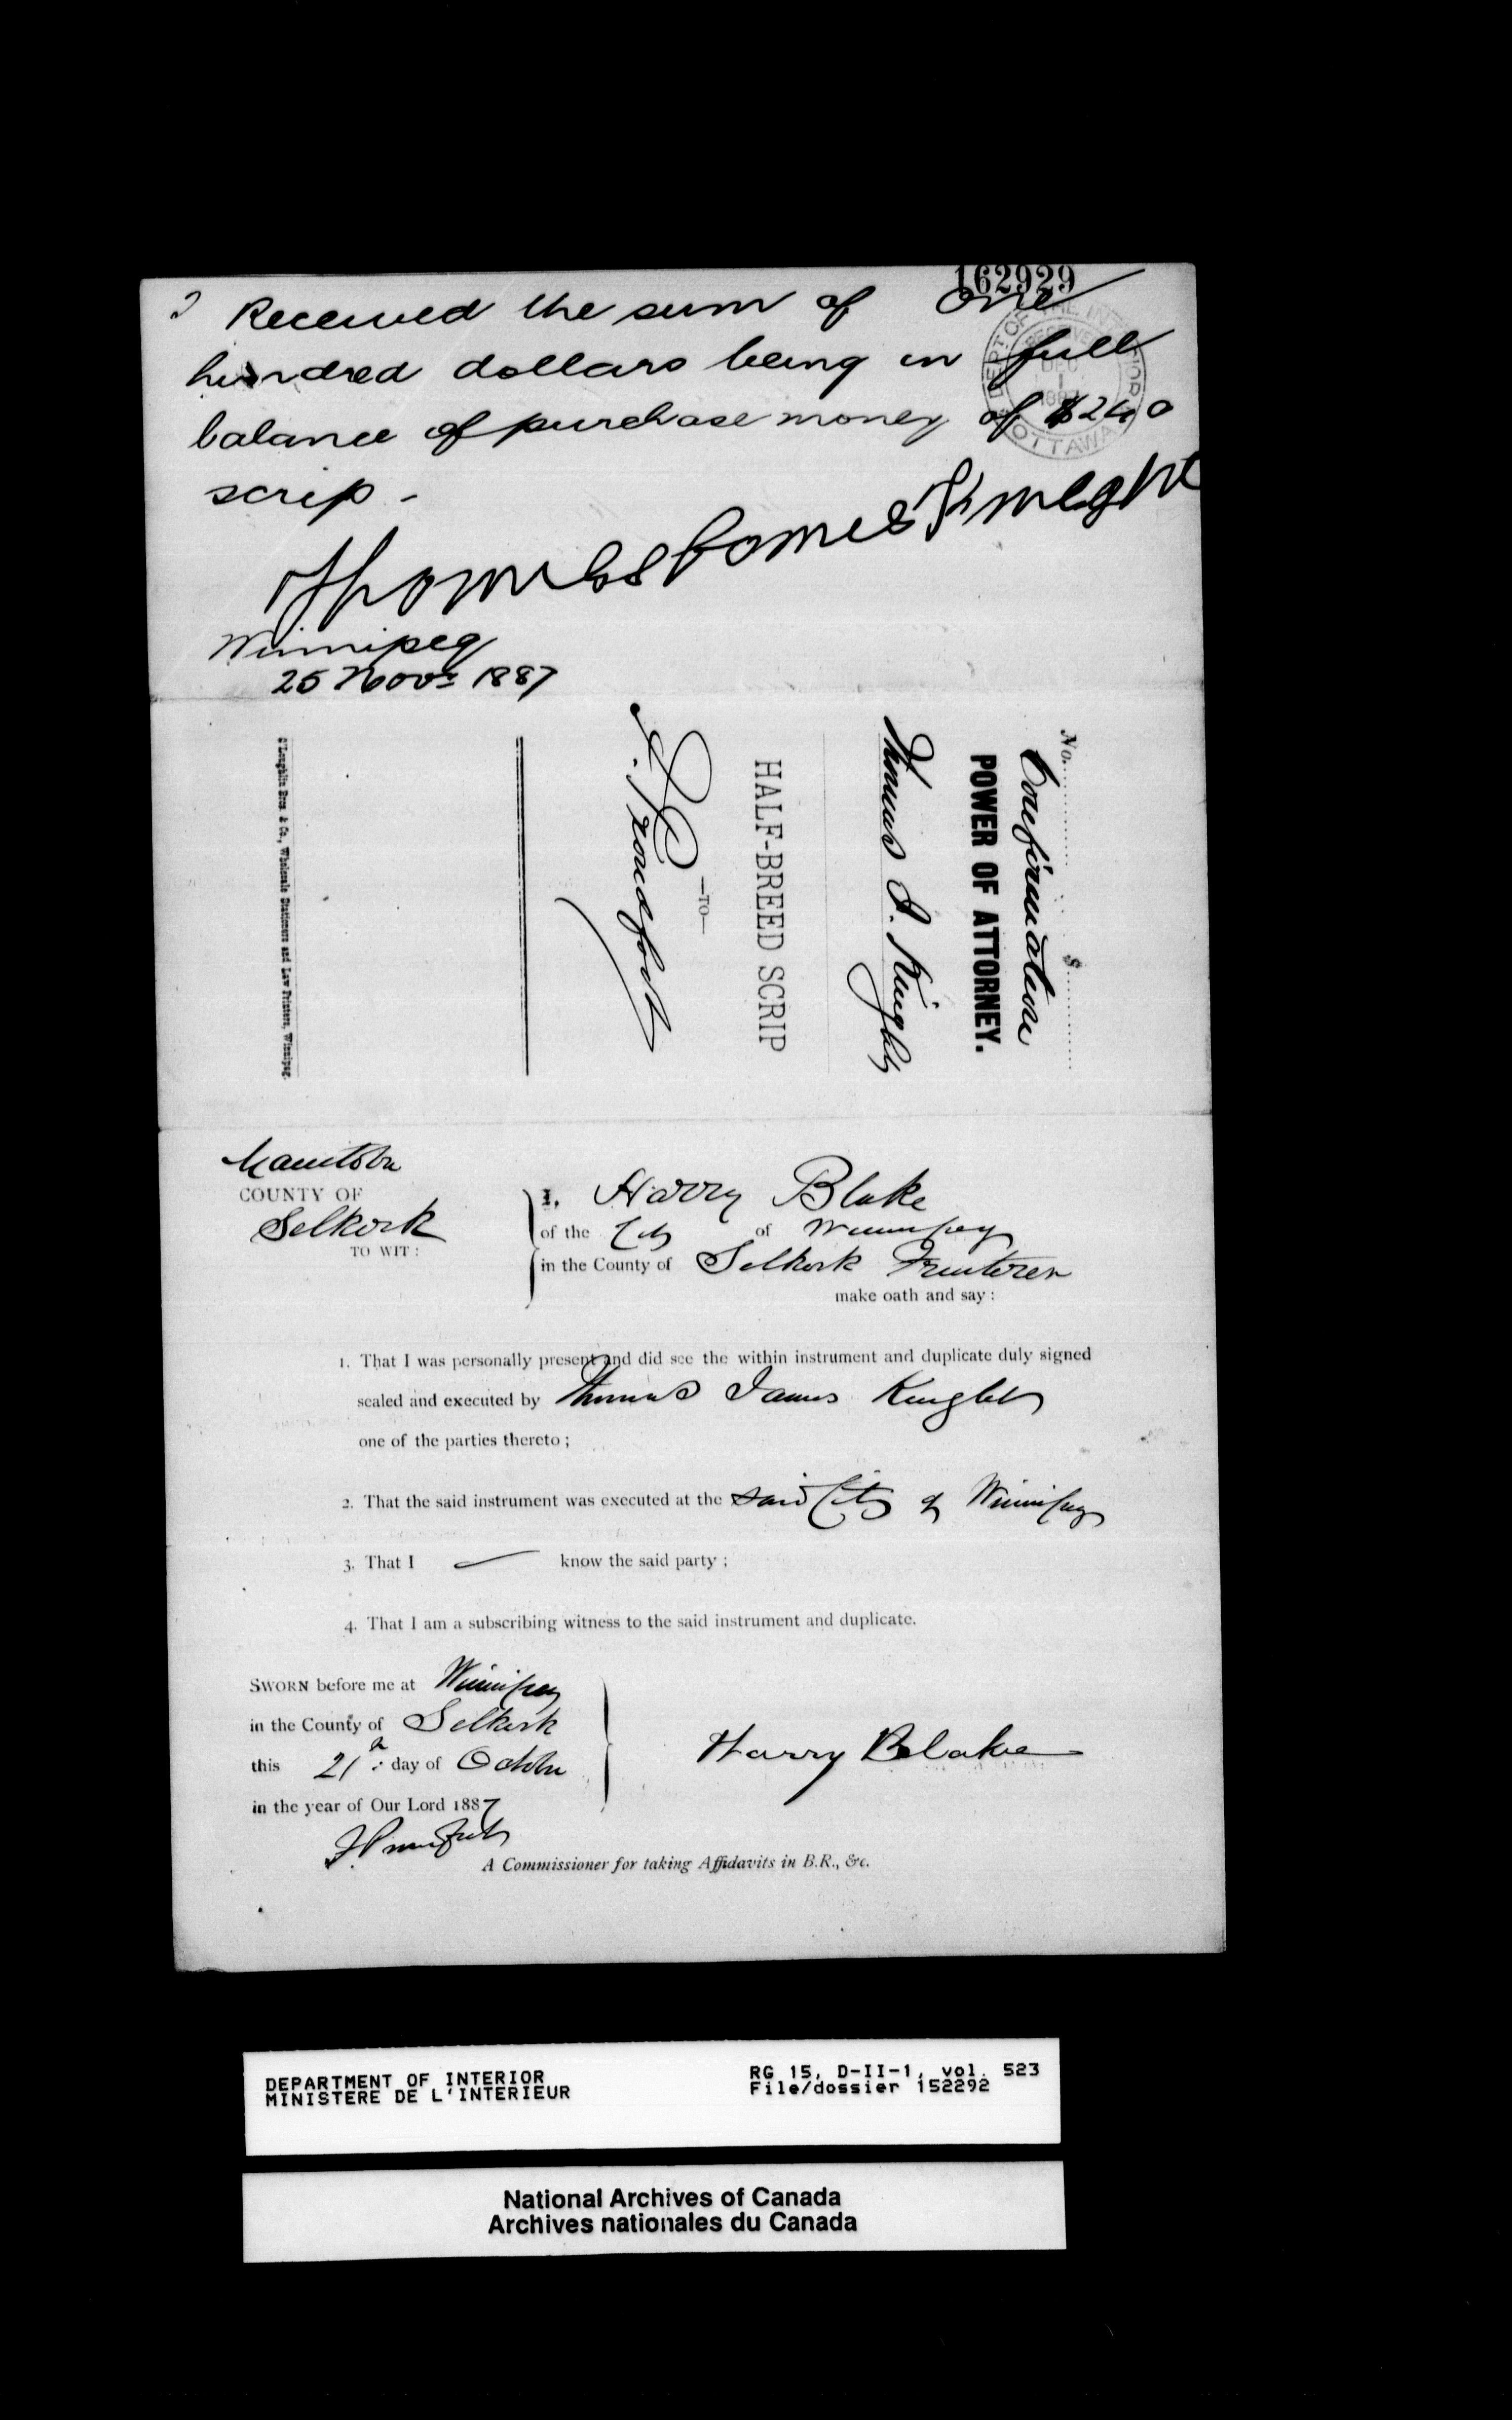 162929
Received the sum of One
hundred dollars being in full
balance of purchase money of $240
scrip -
DEPT OF THE INTERIOR
RECEIVED
DEC
1
1887
OTTAWA
Thomas James Knight
Winnipeg
25 Novr 1887
No. $
Confirmation
POWER OF ATTORNEY.
Thomas J. Knight
HALF-BREED SCRIP
—TO—
O'Loughlin Bros. & Co., Wholesale Stationers and Law Printers, Winnipeg.
Manitoba
COUNTY OF
Selkirk
TO WIT:
I, Harry Blake
of the City of Winnipeg
in the County of Selkirk
make oath and say:
1. That I was personally present and did see the within instrument and duplicate duly signed
sealed and executed by Thomas James Knight
one of the parties thereto;
2. That the said instrument was executed at the said City of Winnipeg
3. That I know the said party;
4. That I am a subscribing witness to the said instrument and duplicate.
SWORN before me at Winnipeg
in the County of Selkirk
this 21st day of October
in the year of Our Lord 1887
Harry Blake
A Commissioner for taking Affidavits in B.R., &c.
DEPARTMENT OF INTERIOR
MINISTERE DE L'INTERIEUR
RG 15, D-II-1, vol. 523
File/dossier 152292
National Archives of Canada
Archives nationales du Canada